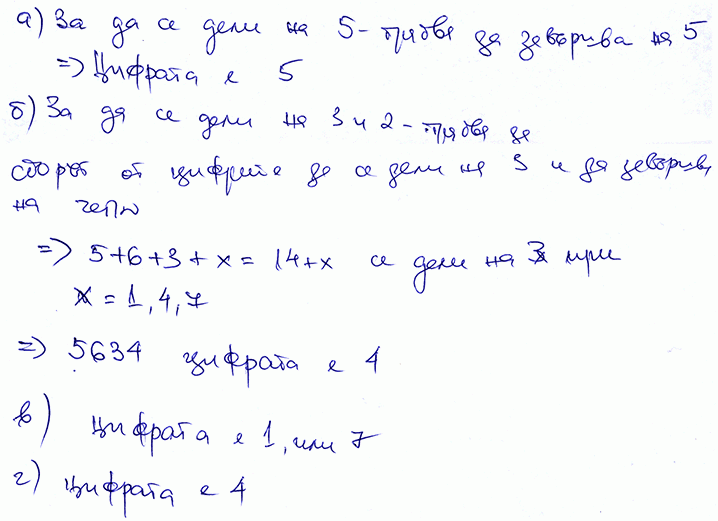 а) За да се дели на 5 - трябва да завършва на 5
=> Цифрата е 5
б) За да се дели на 3 и 2 - трябва да
сборът от цифрите да се дели на 3 и да завършва
на четно
=> 5+6+3+x = 14+x се дели на 3 при
x = 1, 4, 7
=> 5634 цифрата е 4
в) цифрата е 1, или 7
г) цифрата е 4